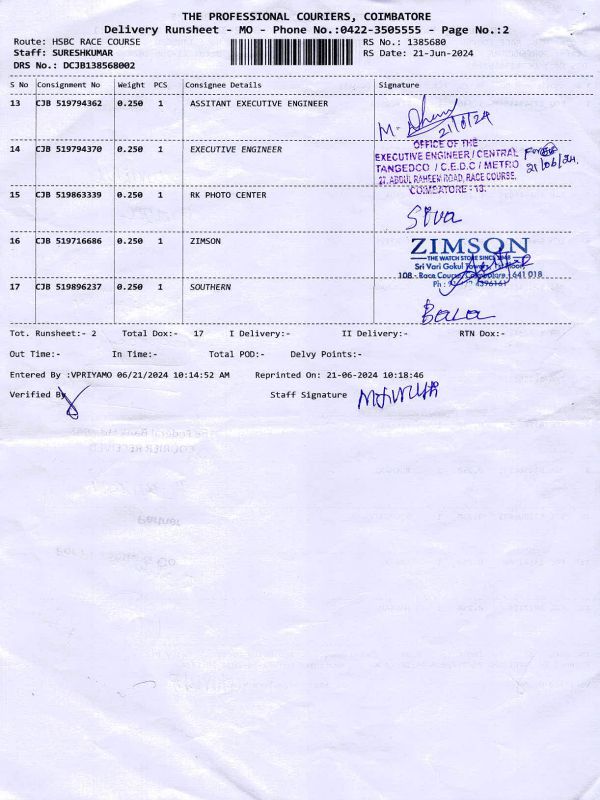 THE PROFESSIONAL COURIERS, COIMBATORE
Delivery Runsheet - MO - Phone No.:0422-3505555 - Page No.:2
Route: HSBC RACE COURSE RS No.: 1385680
Staff: SURESHKUMAR RS Date: 21-Jun-2024
DRS No.: DCJB138568002
S No Consignment No Weight PCS Consignee Details Signature
13 CJB 519794362 0.250 1 ASSITANT EXECUTIVE ENGINEER
21/6/24
14 CJB 519794370 0.250 1 EXECUTIVE ENGINEER
OFFICE OF THE
EXECUTIVE ENGINEER / CENTRAL
TANGEDCO / C.E.D.C / METRO
27, ABDUL RAHEEM ROAD, RACE COURSE,
COIMBATORE - 18.
21/06/24.
15 CJB 519863339 0.250 1 RK PHOTO CENTER
Siva
16 CJB 519716686 0.250 1 ZIMSON
ZIMSON
THE WATCH STORE SINCE 1948
Sri Vari Gokul Towers,
108 - Race Course, Coimbatore - 641 018
Ph :
17 CJB 519896237 0.250 1 SOUTHERN
Bala
Tot. Runsheet:- 2 Total Dox:- 17 I Delivery:- II Delivery:- RTN Dox:-
Out Time:- In Time:- Total POD:- Delvy Points:-
Entered By :VPRIYAMO 06/21/2024 10:14:52 AM Reprinted On: 21-06-2024 10:18:46
Verified By Staff Signature